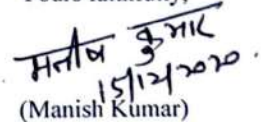 Yours faithfully,
मनीष कुमार
15/12/2020.
(Manish Kumar)